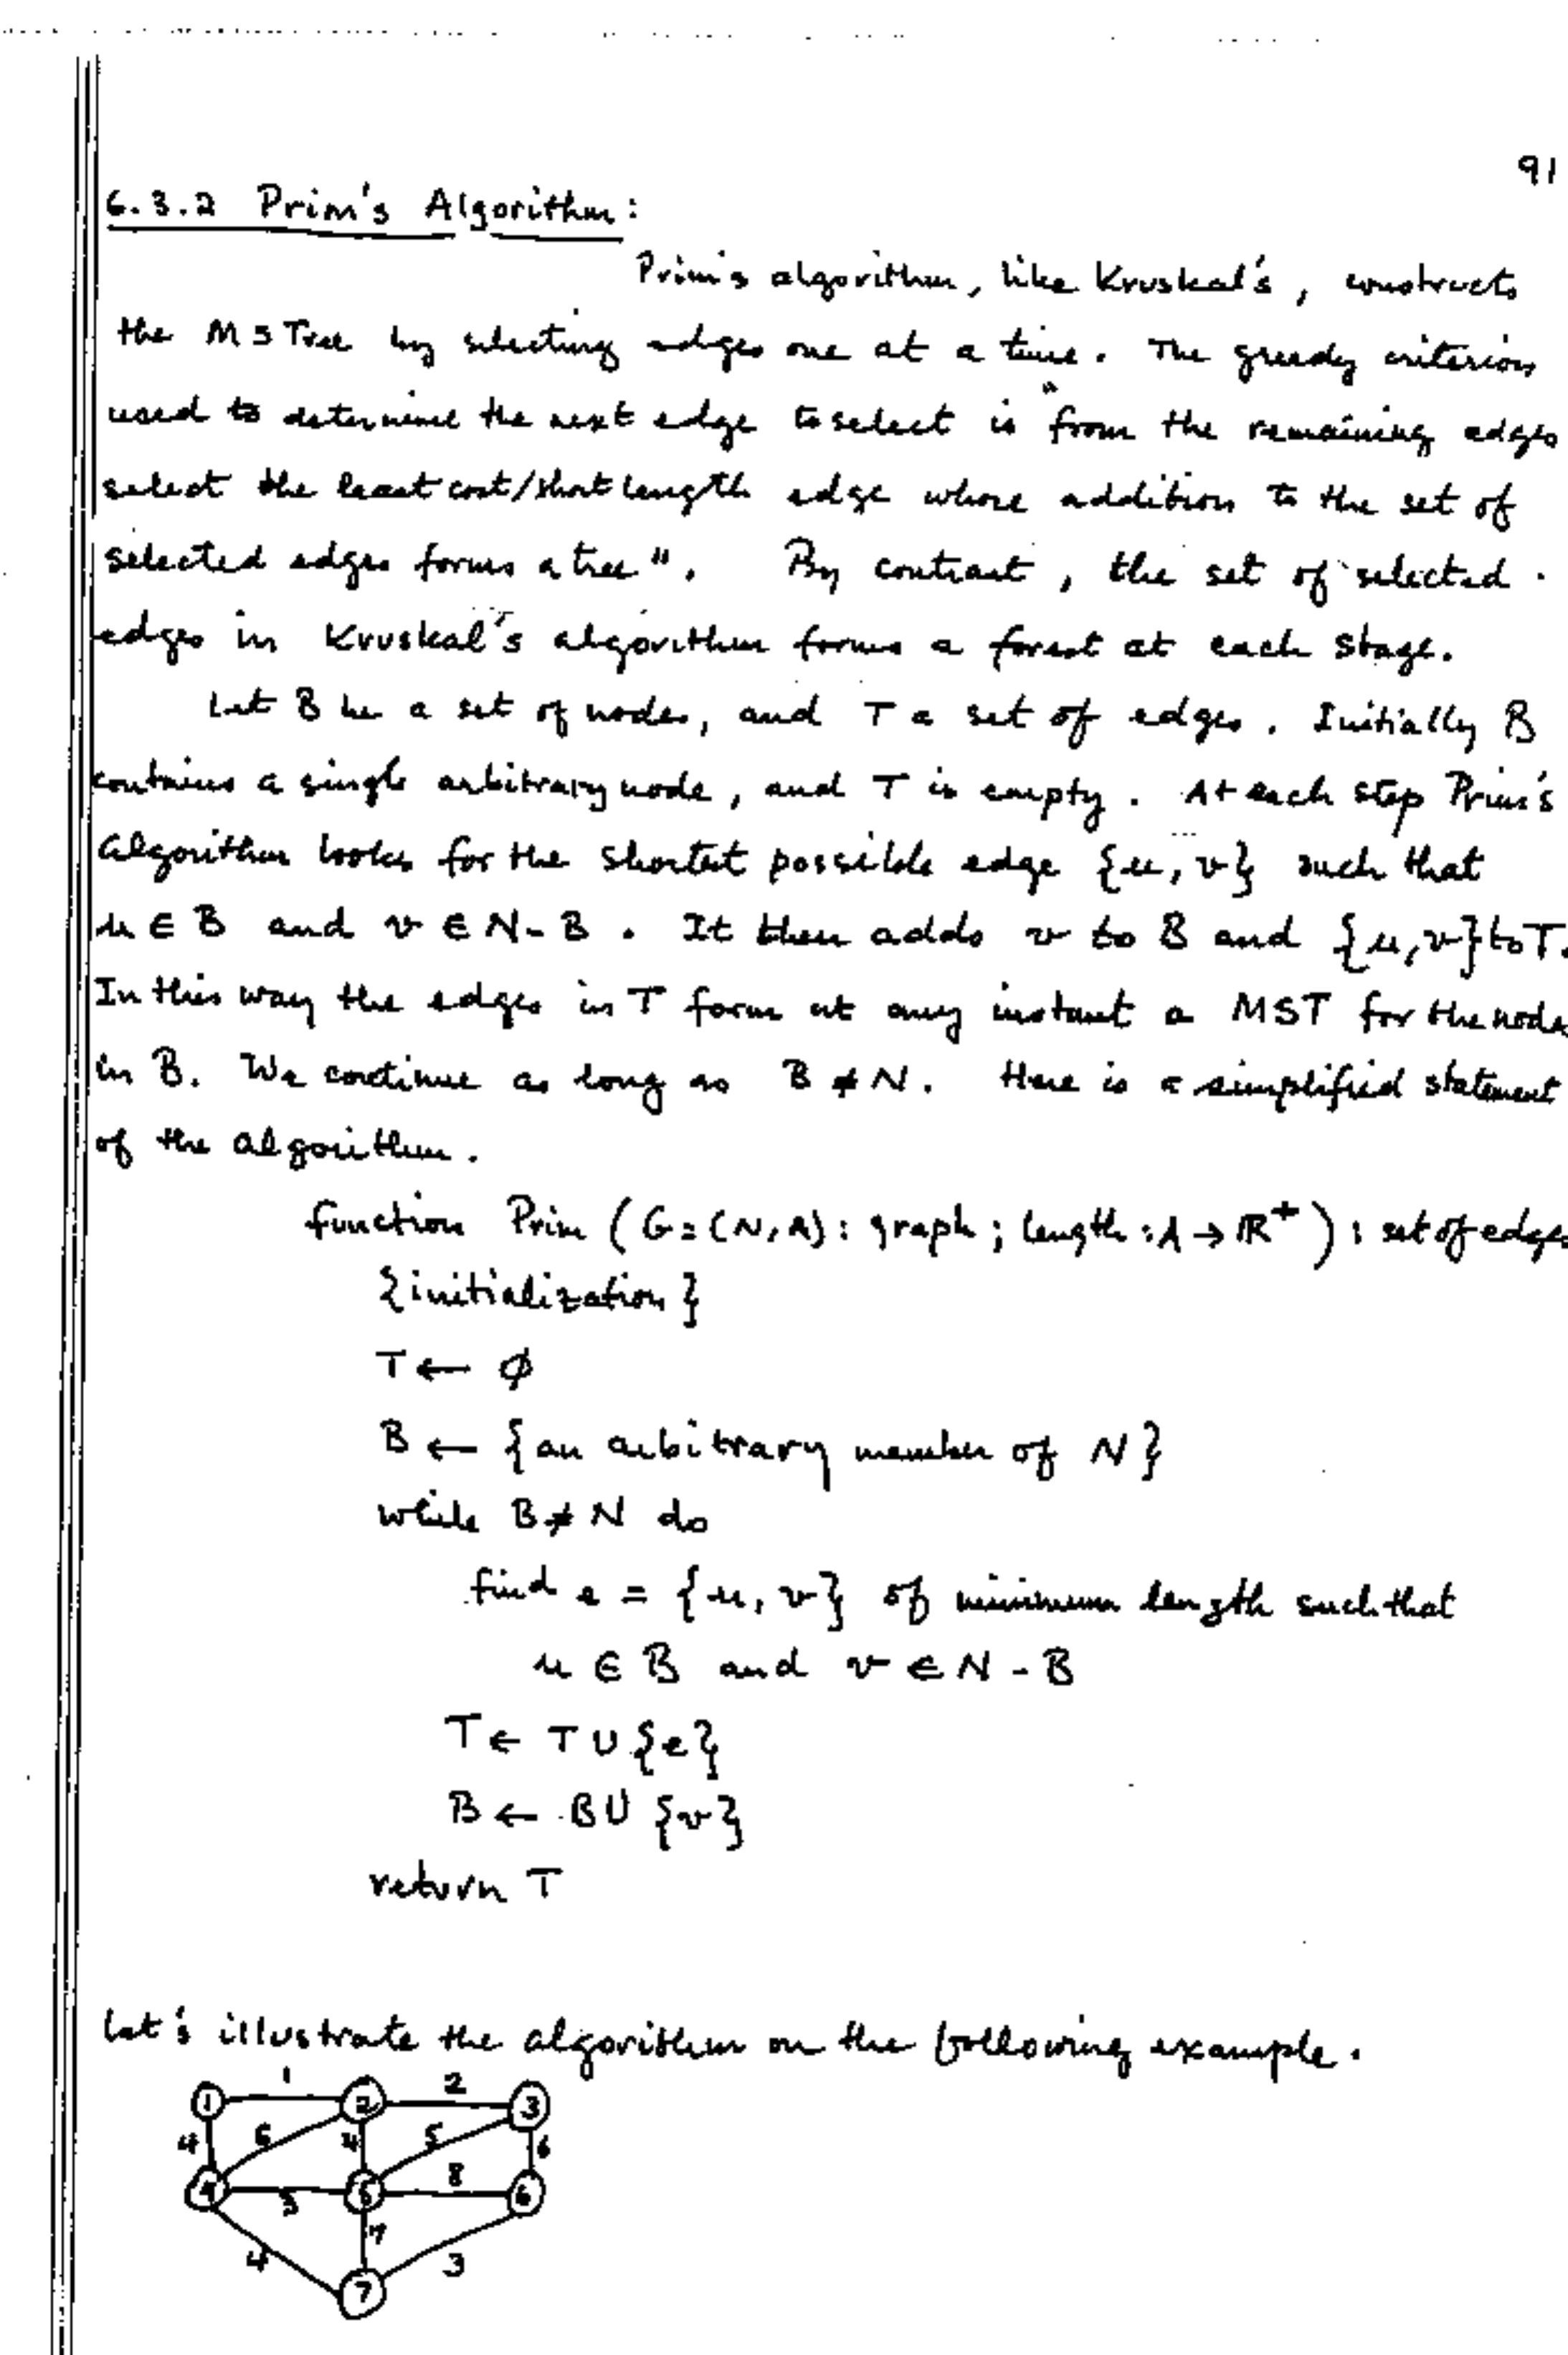 91
6.3.2 Prim's Algorithm:
Prim's algorithm, like Kruskal's, constructs
the MSTree by selecting edges one at a time. The greedy criterion
used to determine the next edge to select is "from the remaining edges
select the least cost/short length edge whose addition to the set of
selected edges forms a tree". By contrast, the set of selected
edges in Kruskal's algorithm forms a forest at each stage.
Let B be a set of nodes, and T a set of edges. Initially B
contains a single arbitrary node, and T is empty. At each step Prim's
Algorithm looks for the shortest possible edge {u, v} such that
u ∈ B and v ∈ N - B. It then adds v to B and {u, v} to T.
In this way the edges in T form at any instant a MST for the node
in B. We continue as long as B ≠ N. Here is a simplified statement
of the algorithm.
function Prim (G = (N, A): graph; length: A → IR⁺): set of edges
{initialization}
T ← ∅
B ← {an arbitrary member of N}
while B ≠ N do
find e = {u, v} of minimum length such that
u ∈ B and v ∈ N - B
T ← T ∪ {e}
B ← B ∪ {v}
return T
Let's illustrate the algorithm on the following example.
1 2
1 2 3
4 6 4 5 6
4 3 5 8 6
4 7 3
7